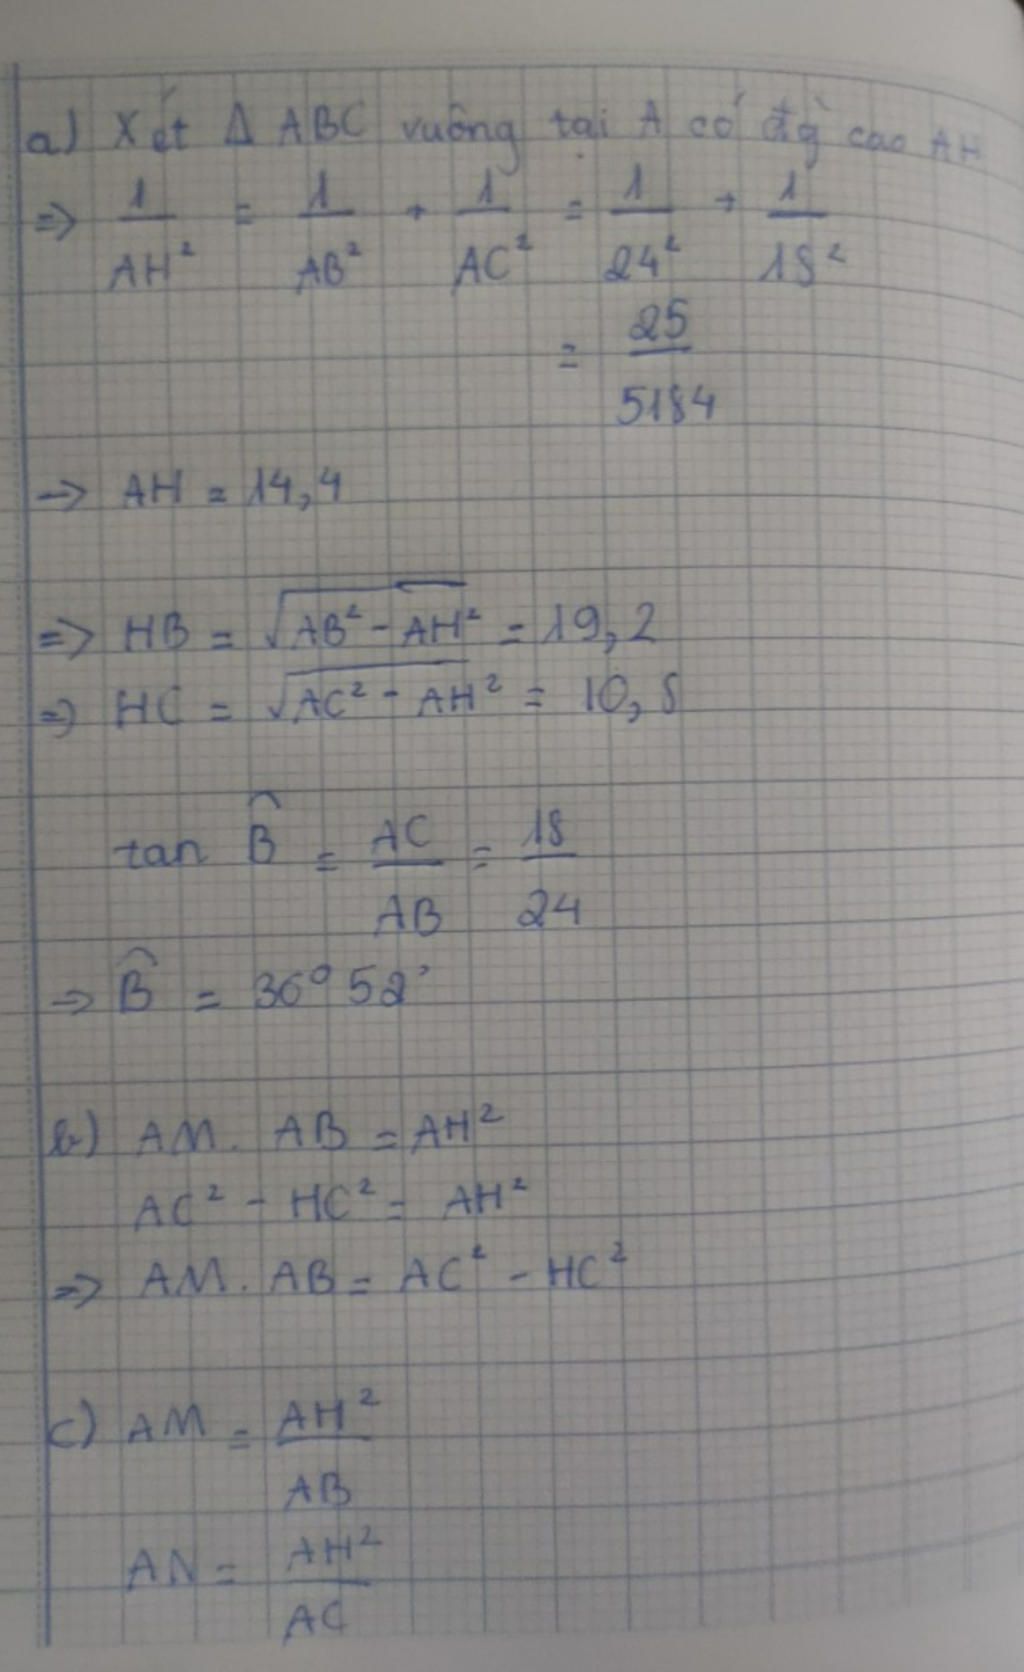 a) Xét Δ ABC vuông tại A có đg̀ cao AH
=> 1/AH² = 1/AB² + 1/AC² = 1/24² + 1/18²
= 25/5184
-> AH = 14,4
=> HB = √AB² - AH² = 19,2
=> HC = √AC² - AH² = 10,8
tan B̂ = AC/AB = 18/24
=> B̂ = 36° 52'
b) AM. AB = AH²
AC² - HC² = AH²
=> AM. AB = AC² - HC²
c) AM = AH²/AB
AN = AH²/AC